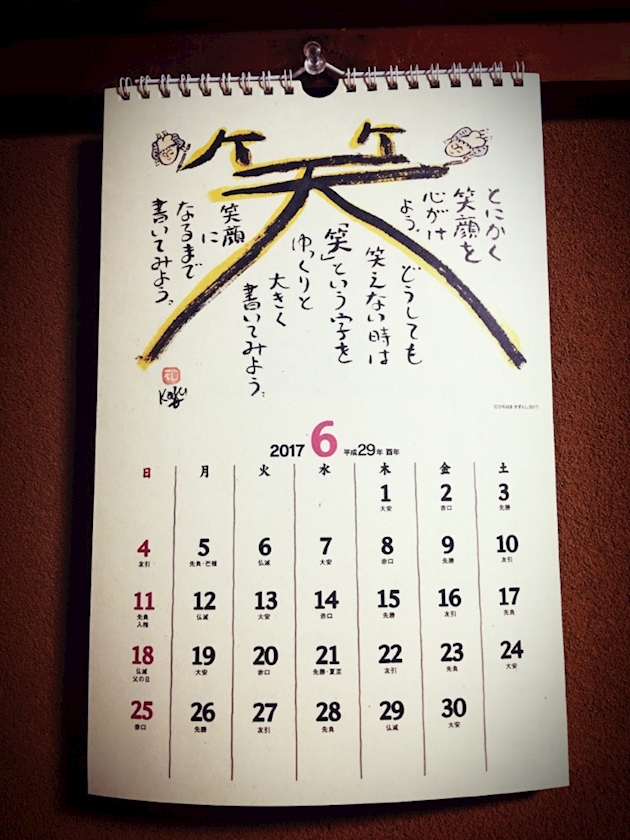 笑
とにかく
笑顔を
心がけ
よう。
どうしても
笑えない時は
「笑」という字を
ゆっくりと
大きく
書いてみよう。
笑顔
に
なるまで
書いてみよう。
2017 6 平成29年 酉年
日 月 火 水 木 金 土
1 2 3
大安 赤口 先勝
4 5 6 7 8 9 10
友引 先負・芒種 仏滅 大安 赤口 先勝 友引
11 12 13 14 15 16 17
先負 仏滅 大安 赤口 先勝 友引 先負
入梅
18 19 20 21 22 23 24
仏滅 大安 赤口 先勝・夏至 友引 先負 大安
父の日
25 26 27 28 29 30
赤口 先勝 友引 先負 仏滅 大安